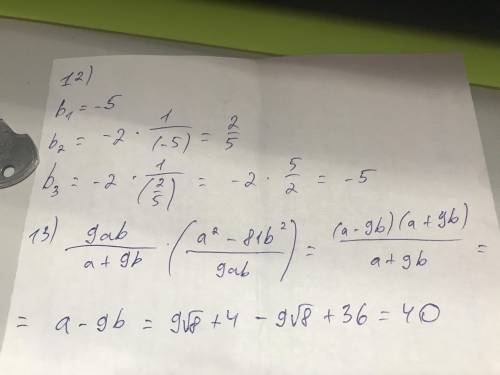 12)
b₁ = -5
b₂ = -2 · 1/(-5) = 2/5
b₃ = -2 · 1/(2/5) = -2 · 5/2 = -5
13) 9ab/(a + 9b) · ((a² - 81b²)/9ab) = (a - 9b)(a + 9b)/(a + 9b) =
= a - 9b = 9√8 + 4 - 9√8 + 36 = 40